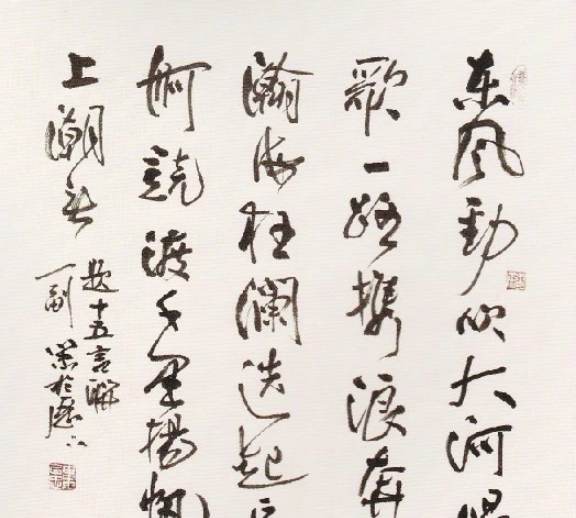 东风劲吹大河唱
歌一路携浪奔
瀚海狂澜迭起
舸竞渡千里扬帆
上潮头
题十五言联
一副